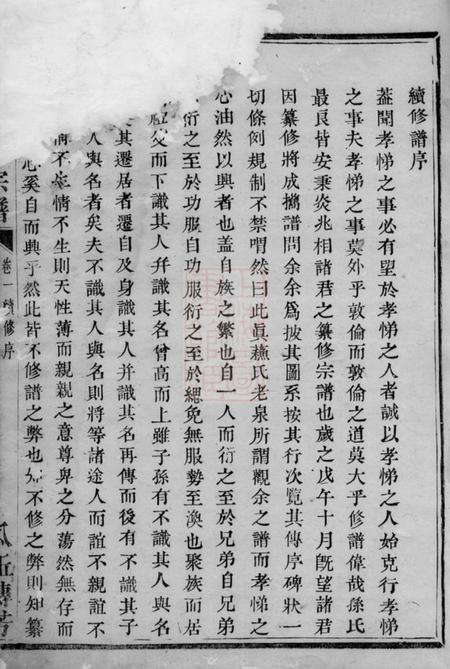 續修譜序
蓋聞孝悌之事必有望於孝悌之人者誠以孝悌之人始克行孝悌
之事夫孝悌之事莫外乎敦倫而敦倫之道莫大乎修譜偉哉孫氏
最良皆安秉炎兆相諸君之纂修宗譜也歲之戊午十月旣望諸君
因纂修將成攜譜問余余爲披其圖系按其行次覽其傳序碑狀一
切條例規制不禁喟然曰此眞蘇氏老泉所謂觀余之譜而孝悌之
心油然以興者也盖自族之繁也自一人而衍之至於兄弟自兄弟
衍之至於功服自功服衍之至於緦免無服勢至渙也聚族而居
父而下識其人幷識其名曾高而上雖子孫有不識其人與名
其遷居者遷自及身識其人幷識其名再傳而後有不識其子
人與名者矣夫不識其人與名則將等諸途人而誼不親誼不
而不幸情不生則天性薄而親親之意尊卑之分蕩然無存而
心奚自而興乎然此皆不修譜之弊也如不修之弊則知纂
宗譜
卷一 續修序